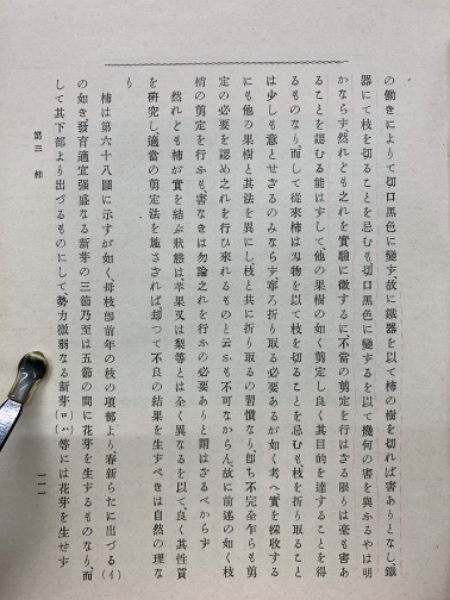 の働きによりて切口黑色に變ず、故に鐵器を以て柿の樹を切れば害ありとなし、鐵
器にて枝を切ることを忌むも切口黑色に變ずるを以て幾何の害を與ふるやは明
かならず、然れども之れを實驗に徵するに、不當の剪定を行はざる限りは毫も害あ
ることを認むる能はずして、他の果樹の如く剪定し良く其目的を達することを得
るものなり、而して從來柿は刃物を以て枝を切ることを忌むも、枝を折り取ること
は少しも意とせざるのみならず寧ろ折り取る必要あるが如く考へ實を採收する
にも他の果樹と其法を異にし、枝と共に折り取るの習慣なり、卽ち不完全乍らも剪
定の必要を認め之れを行ひ來れるものと云ふも不可なからん、故に前述の如く枝
梢の剪定を行ふも、害なきは勿論之れを行ふの必要ありと謂はざるべからず
然れども柿が實を結ぶ狀態は、苹果又は梨等とは全く異なるを以て、良く其性質
を硏究し、適當の剪定法を施さざれば却つて不良の結果を生ずべきは自然の理な
り
柿は第六十八圖に示すが如く、母枝卽前年の枝の項部より春新らたに出づる(イ)
の如き、發育適宜强盛なる新芽の三節乃至は五節の間に花芽を生ずるものなり、而
して其下部より出づるものにして勢力微弱なる新芽(ロ)(ハ)等には花芽を生せず
第三 柿
一一一